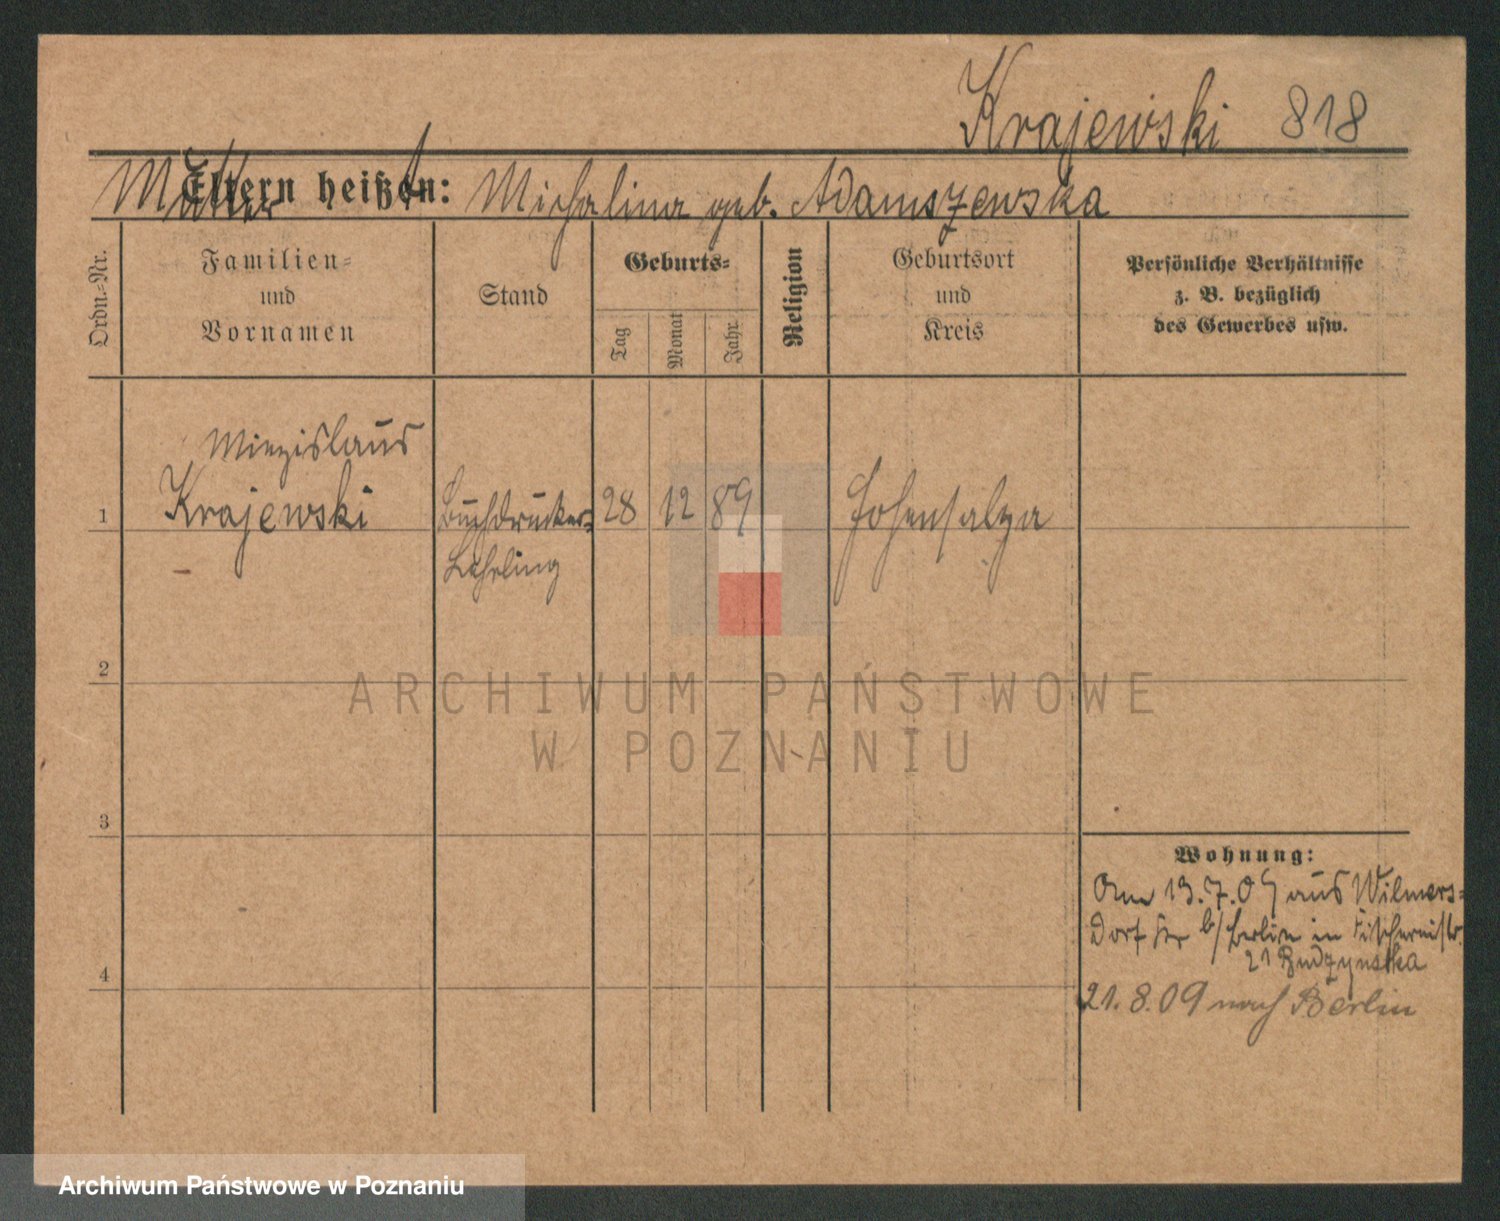 Krajewski 818
Mutter
Eltern heißen: Michalina geb. Adamszewska
Ordn.-Nr.
Familien-
und
Vornamen
Stand
Geburts-
Tag
Monat
Jahr
Religion
Geburtsort
und
Kreis
Persönliche Verhältnisse
z. B. bezüglich
des Gewerbes usw.
Miezislaus
1 Krajewski Buchdrucker- 28 12 89 Hohensalza
Lehrling
2
ARCHIWUM PAŃSTWOWE
W POZNANIU
3
Wohnung:
Am 13.7.09 aus Wilmers-
dorf b/Berlin in
21 Budzynska
4
21.8.09 nach Berlin
Archiwum Państwowe w Poznaniu